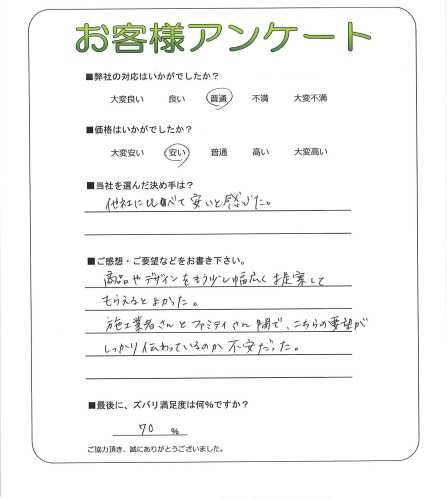 お客様アンケート
■弊社の対応はいかがでしたか？
大変良い 良い 普通 不満 大変不満
■価格はいかがでしたか？
大変安い 安い 普通 高い 大変高い
■当社を選んだ決め手は？
他社に比べて安いと感じた。
■ご感想・ご要望などをお書き下さい。
商品やデザインをもう少し幅広くお提案して
もらえるとよかった。
施工業者さんとファミティさん間で、こちらの要望が
しっかり伝わっているのか不安だった。
■最後に、ズバリ満足度は何％ですか？
70 ％
ご協力頂き、誠にありがとうございました。